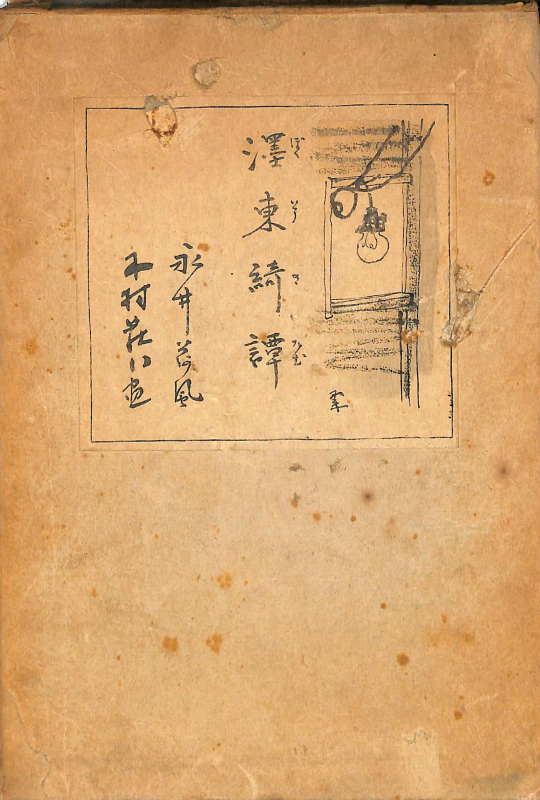 濹東綺譚
ぼくとうきたん
永井荷風
木村荘八画